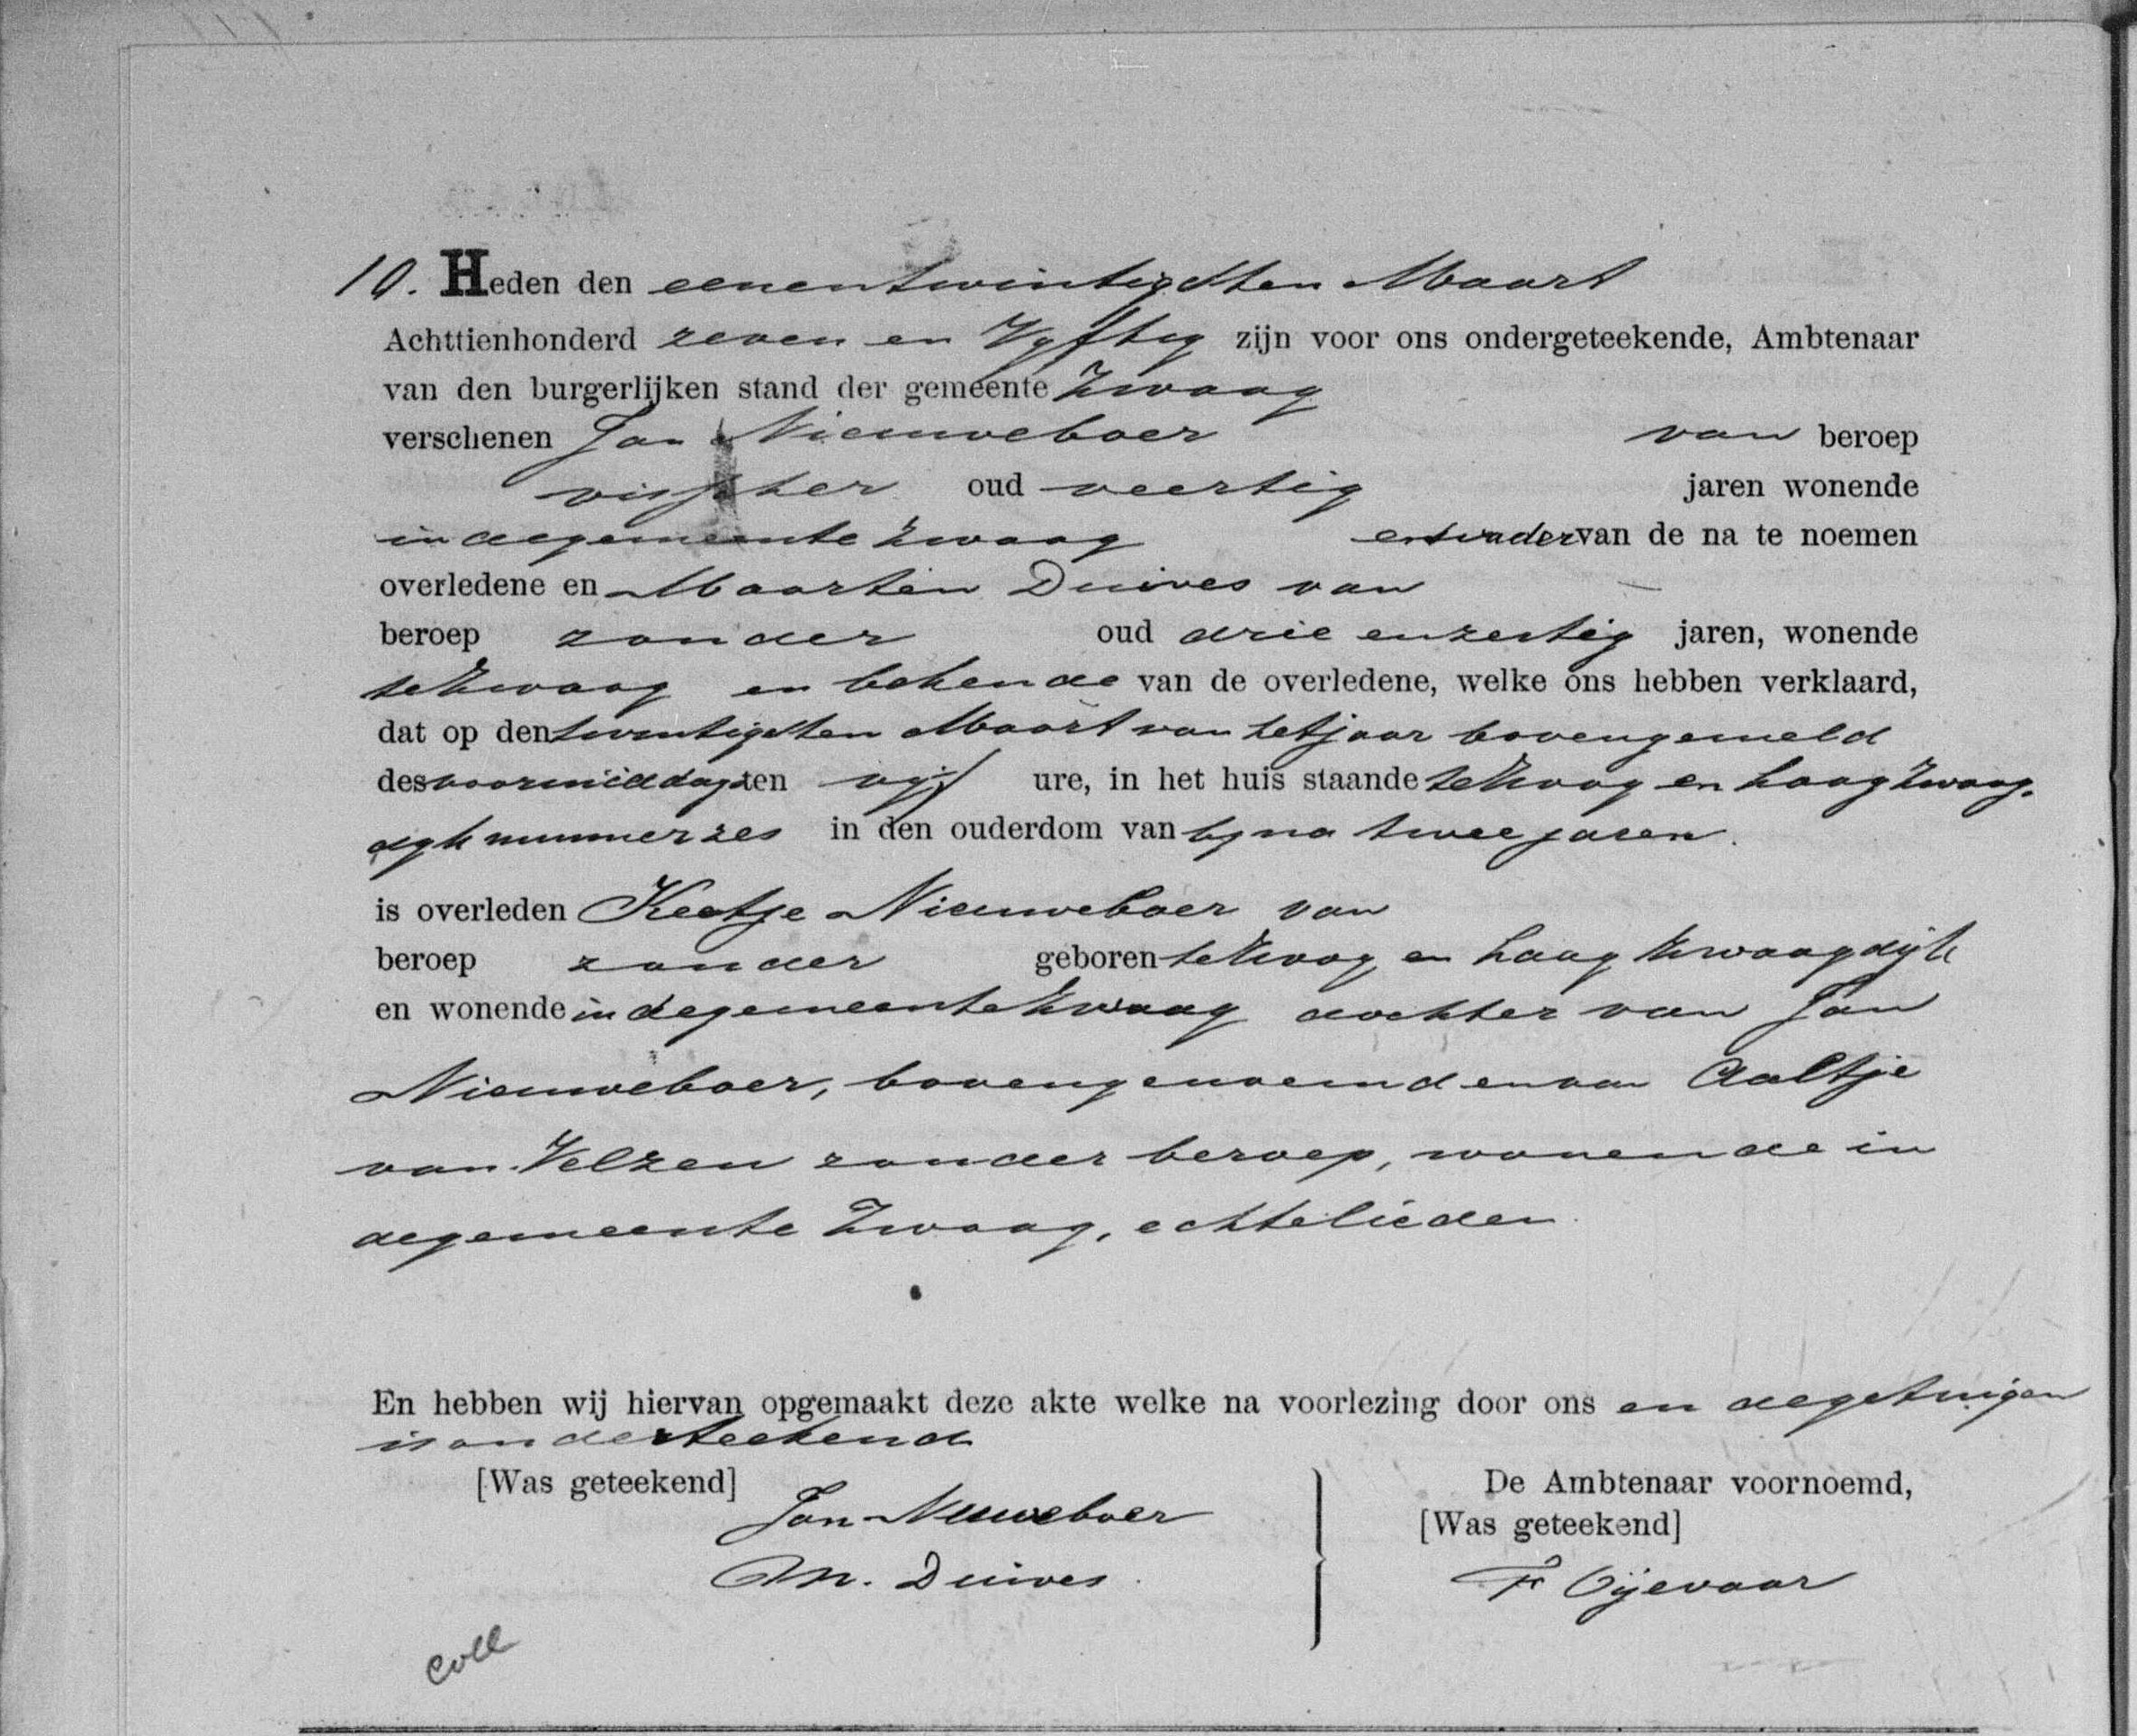 10. Heden den eenentwintigsten Maart
Achttienhonderd zeven en Vyftig zijn voor ons ondergeteekende, Ambtenaar
van den burgerlijken stand der gemeente Zwaag
verschenen Jan Nieuweboer van beroep
visscher oud veertig jaren wonende
in de gemeente Zwaag en vader van de na te noemen
overledene en Maarten Duives van
beroep zonder oud drie en zestig jaren, wonende
te Zwaag en bekende van de overledene, welke ons hebben verklaard,
dat op den twintigsten Maart van het jaar bovengemeld
des voormiddags ten vijf ure, in het huis staande te Hoog en Laag Zwaag-
dyk nummer zes in den ouderdom van byna twee jaren.
is overleden Keetje Nieuweboer van
beroep zonder geboren te Hoog en Laag Zwaagdijk
en wonende in de gemeente Zwaag dochter van Jan
Nieuweboer, bovengenoemd en van Aaltje
van Velzen zonder beroep, wonende in
de gemeente Zwaag, echtelieden.
En hebben wij hiervan opgemaakt deze akte welke na voorlezing door ons en de getuigen
is onderteekend
[Was geteekend] De Ambtenaar voornoemd,
Jan Nieuweboer [Was geteekend]
M. Duives. F Oijevaar
Coll